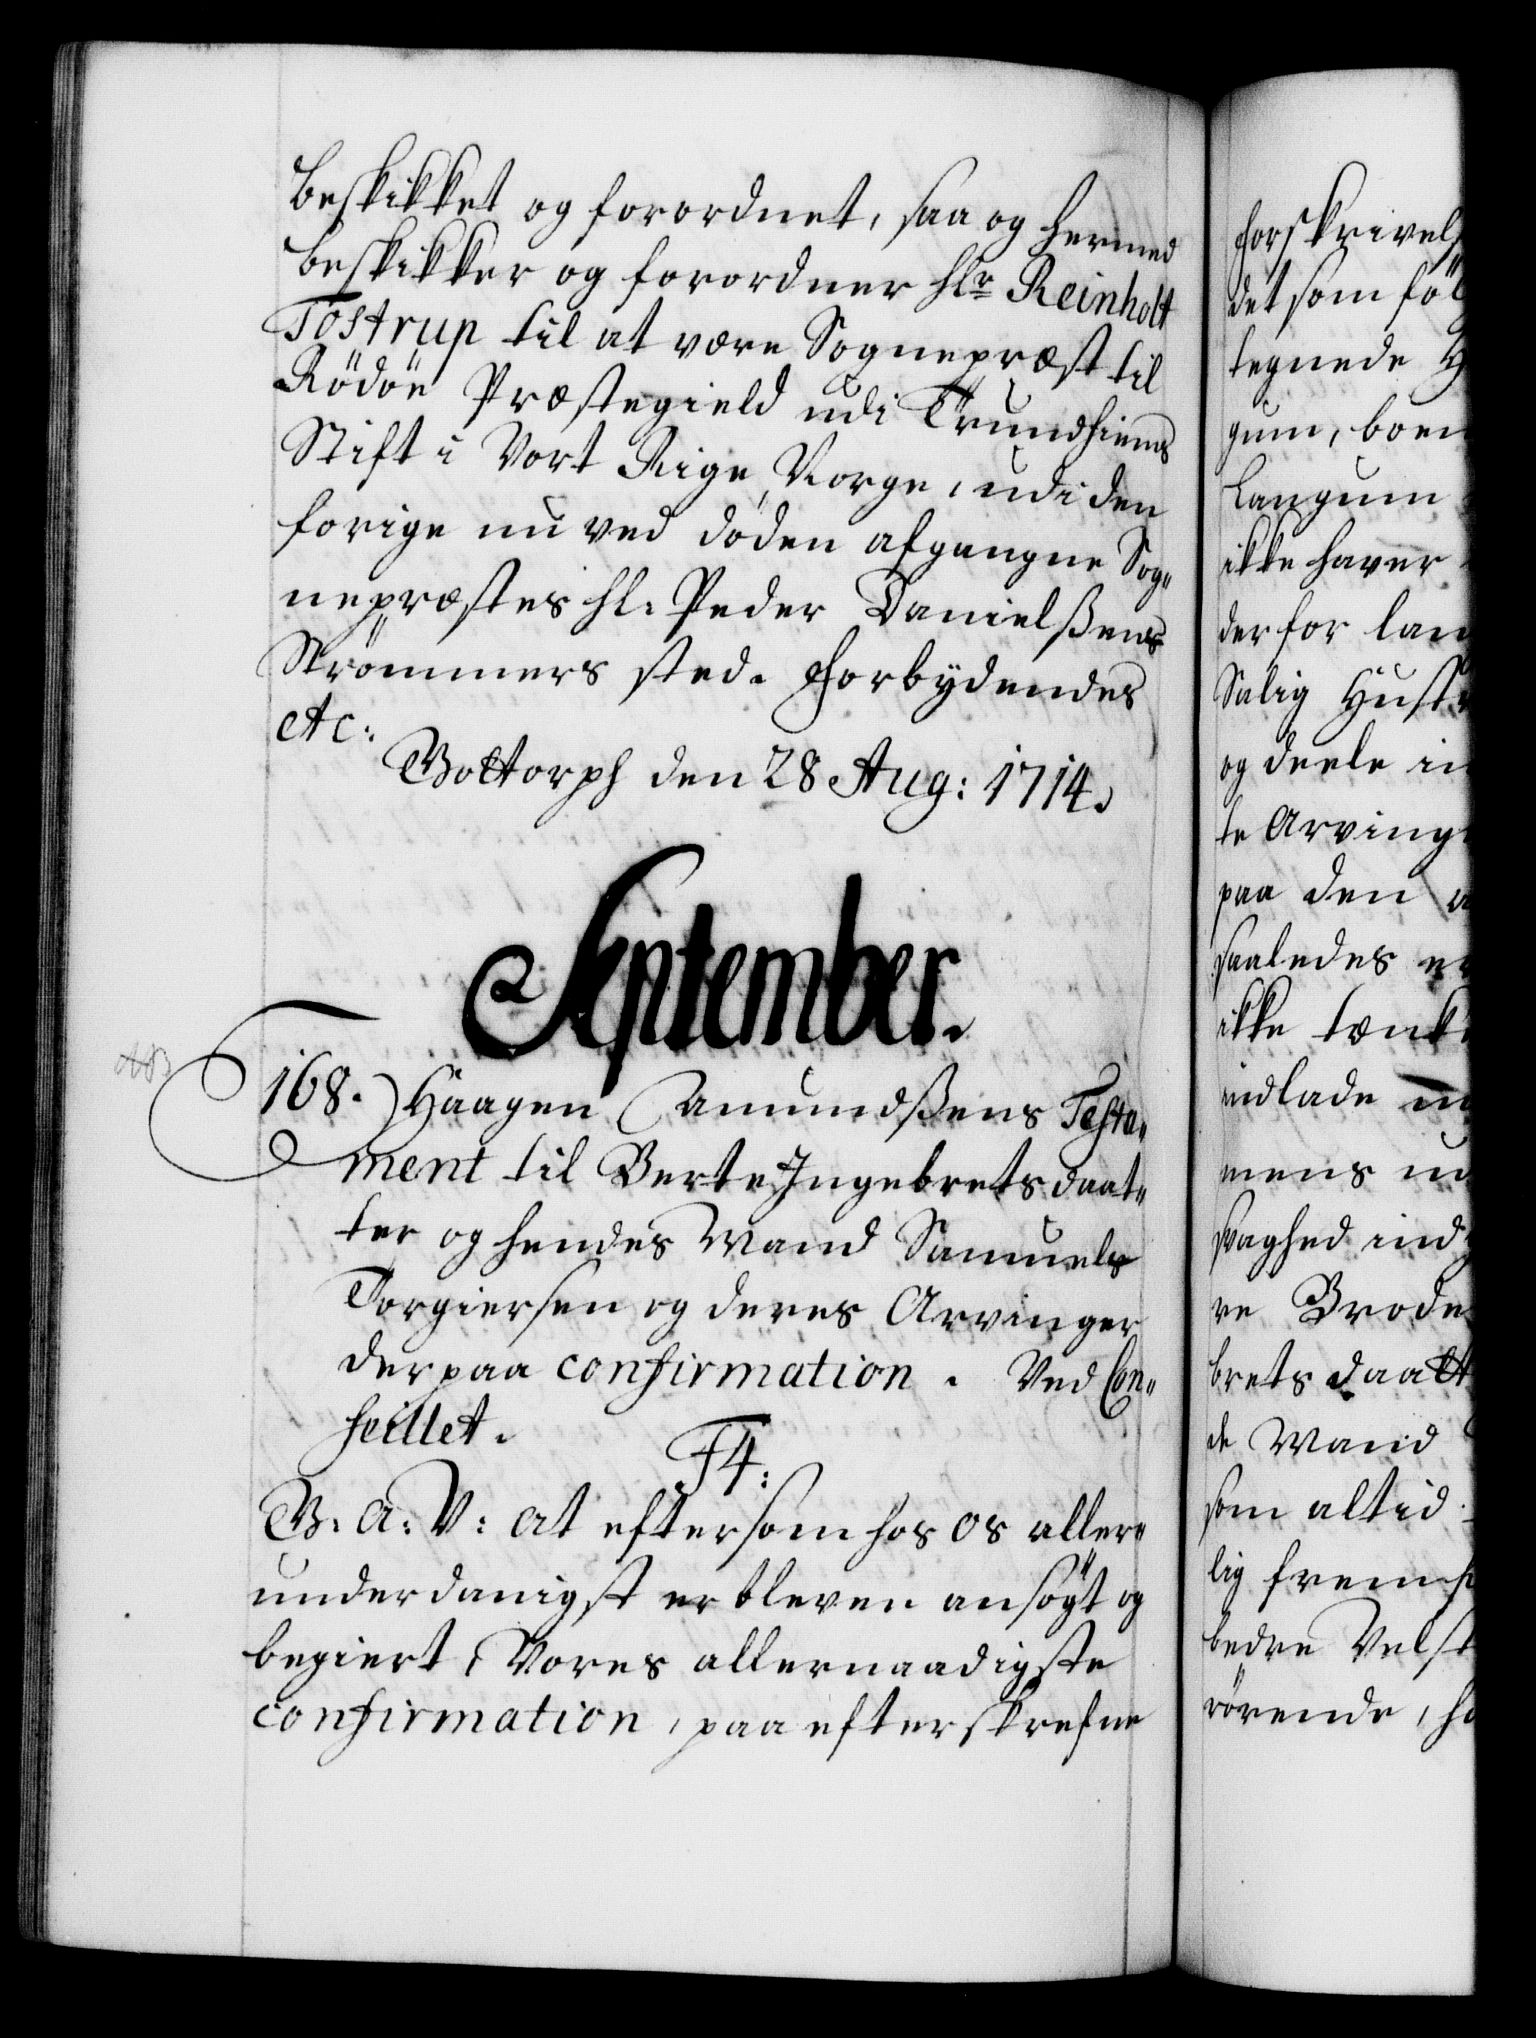 beskikket og forordnet, saa og hermed
beskikker og forordner hlr Reinholt
Tostrup til at være Sognepræst til
Rödöe Præstegield udi Trundhiems
Stift i Vort Rige Norge, udi den
forige nu ved döden afgangne Sog„
nepræstes hl: Peder Danielßens
Strömmers sted. Forbydendes
etc:
Gottorph den 28 Aug: 1714.
September.
168.) Haagen Amundßens Testa„
ment til Berte Ingebretsdaat„
ter og hendes Mand Samuel
Torgiersen og deres Arvinger
derpaa confirmation. Ved Con„
seillet.
F4:
G. A: V: at eftersom hos os aller„
underdanigst er bleven ansögt og
begiert, Vores allernaadigste
confirmation, paa efterskrefne
forskrivels
det som föl
tegnede H
gum, boen
Langum
ikke haver
derfor lan
Salig Hustr
og deele in
te Arving
paa den
saaledes er
ikke tænk
indlade
mens ud
svaghed ind
re Brode
brets daatt
de Mand
som altid
lig frem
bedre Velst
rörende, ha